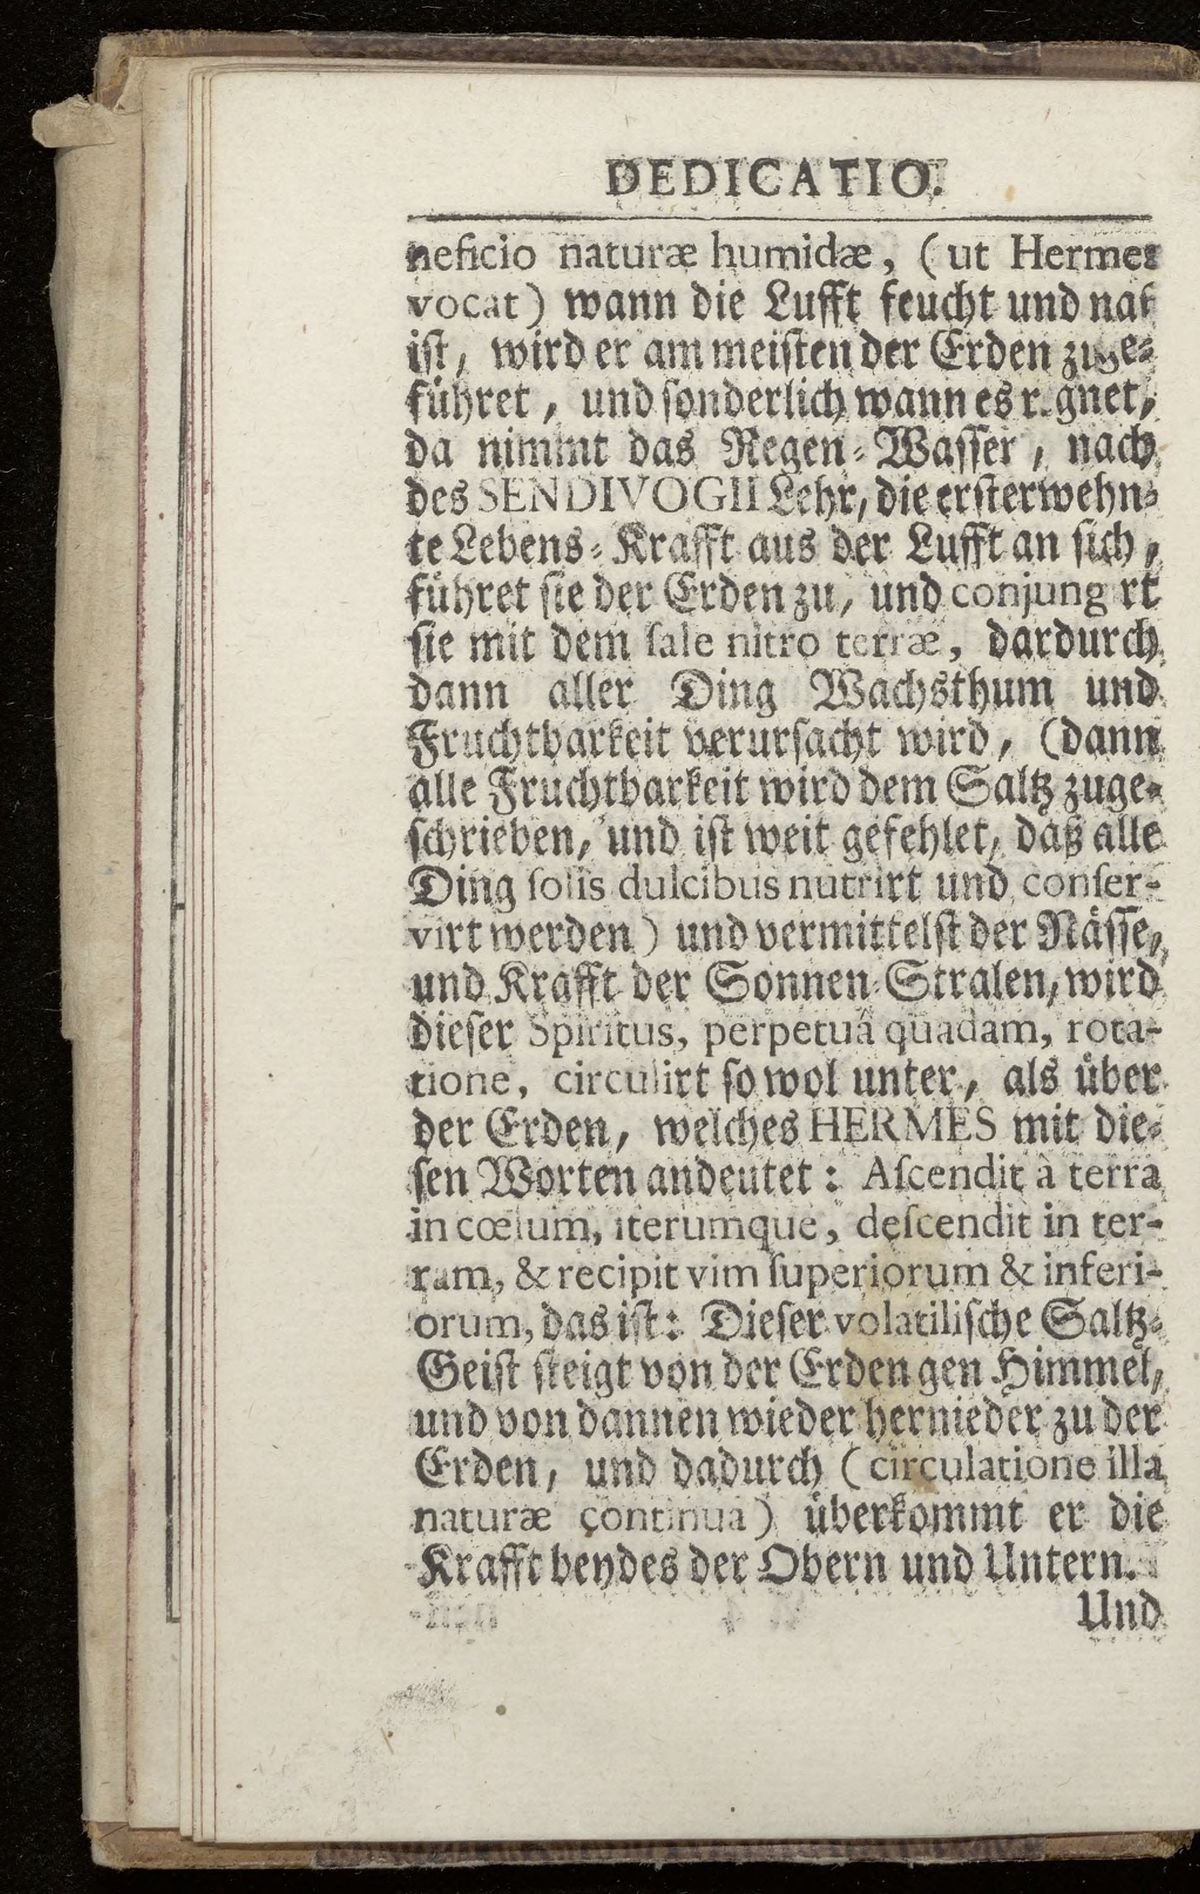 DEDICATIO.
neficio naturæ humidæ, (ut Hermes
vocat) wann die Lufft feucht und naß
iſt, wird er am meiſten der Erden zuge⸗
führet, und ſonderlich wann es regnet,
da nimmt das Regen⸗Waſſer, nach
des SENDIVOGII Lehr, die erſterwehn⸗
te Lebens⸗Krafft aus der Lufft an ſich,
führet ſie der Erden zu, und conjungirt
ſie mit dem ſale nitro terræ, dardurch
dann aller Ding Wachsthum und
Fruchtbarkeit verurſacht wird, (dann
alle Fruchtbarkeit wird dem Saltz zuge⸗
ſchrieben, und iſt weit gefehlet, daß alle
Ding ſolis dulcibus nutrirt und conſer-
virt werden) und vermittelſt der Näſſe,
und Krafft der Sonnen⸗Stralen, wird
dieſer Spiritus, perpetuâ quadam, rota-
tione, circulirt ſo wol unter, als über
der Erden, welches HERMES mit die⸗
ſen Worten andeutet: Aſcendit à terra
in cœlum, iterumque, deſcendit in ter-
ram, & recipit vim ſuperiorum & inferi-
orum, das iſt: Dieſer volatiliſche Saltz⸗
Geiſt ſteigt von der Erden gen Himmel,
und von dannen wieder hernieder zu der
Erden, und dadurch (circulatione illa
naturæ continua) überkommt er die
Krafft beydes der Obern und Untern.
Und